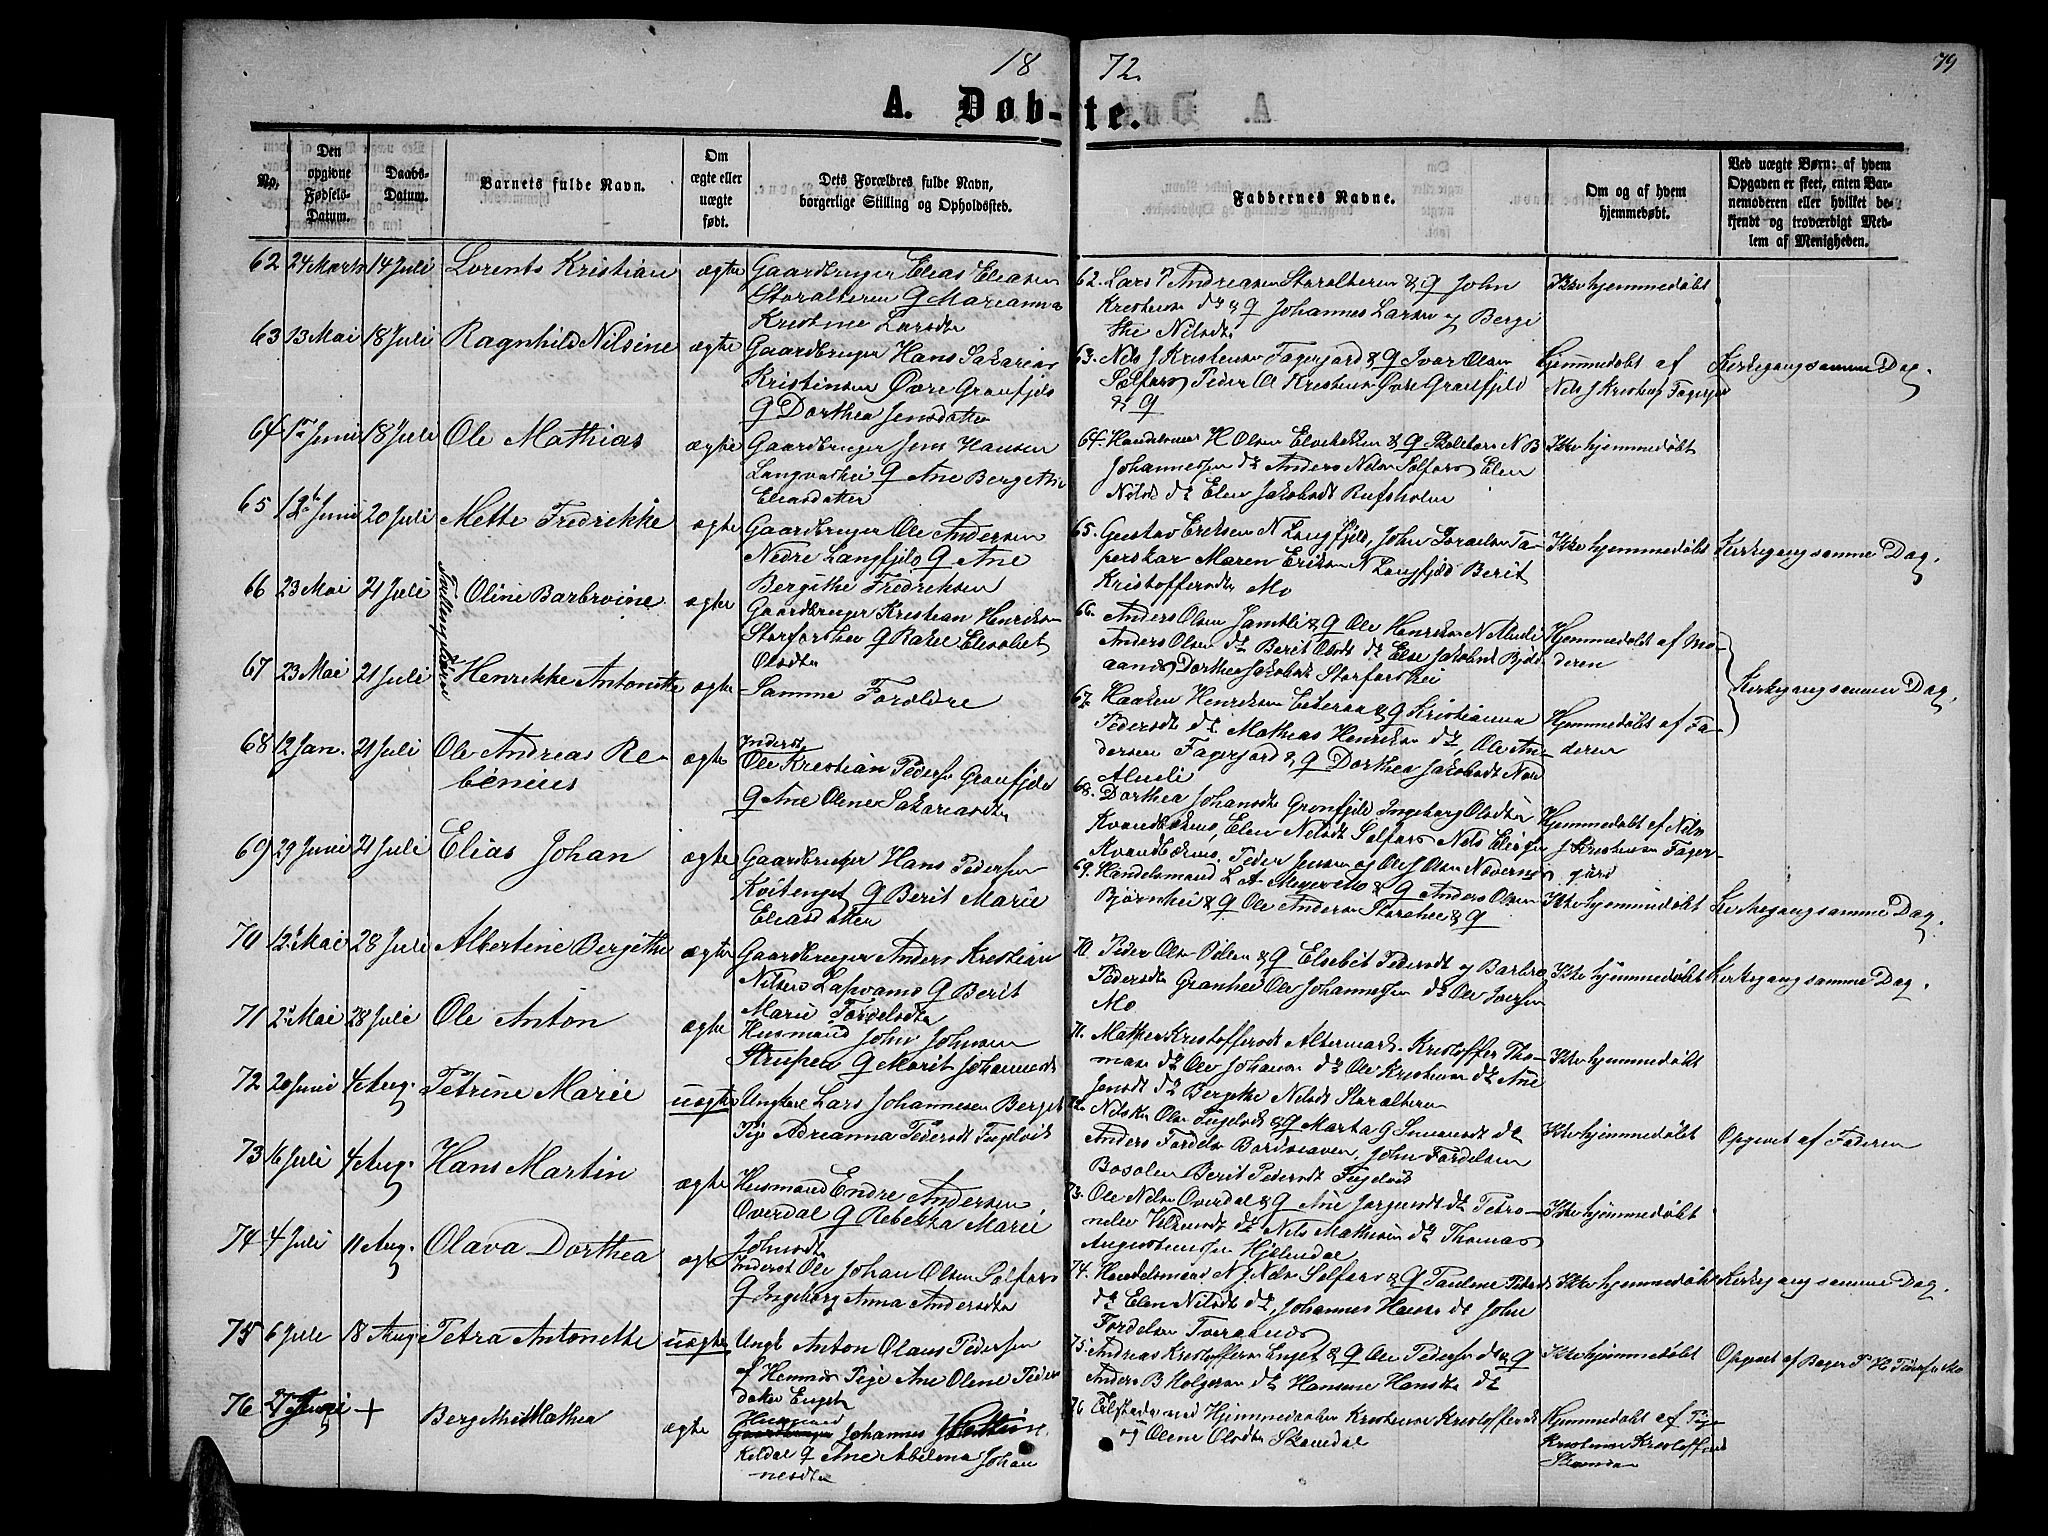 18 72.
79
A. Døb-te.
No.
Den opgivne Fødsels-Datum.
Daabs-Datum.
Barnets fulde Navn.
Om ægte eller uægte født.
Dets Forældres fulde Navn, borgerlige Stilling og Opholdssted.
Faddernes Navne.
Om og af hvem hjemmedøbt.
Ved uægte Børn: af hvem Opgaven er skeet, enten Barnemoderen eller hvilket bekjendt og troværdigt Medlem af Menigheden.
62 24 Marts 14 Juli Lorents Kristian ægte Gaardbruger Elias Eliasen
Storalteren G Marianna
Kristine Larsdtr
62. Lars Andreasen Storalteren & G John
Kristensen do & G Johannes Larsen og Berge
the Nilsdtr
Ikke hjemmedøbt
63 13 Mai 18 Juli Ragnhild Nilsine ægte Gaardbruger Hans Sakarias
Kristensen Øvre Graufjeld
G Dorthea Jensdatter
63. Nils J Kristensen Fagerjord & G Ivar Olsen
Selfors Peder O Kristensen Øvre Graufjeld
& G
Hjemmedøbt af
Nils J Kristens Fagerjord
Kirkegang samme Dag.
64 1ste Juni 18 Juli Ole Mathias ægte Gaardbruger Jens Hansen
Langvashei G Ane Bergethe
Eliasdatter
64. Handelsmand H Olsen Elvebakken & G N B
Johannessen do Anders Nilsen Selfors Elen
Nilsdt do Elen Jakobsdt Rufsholm
Ikke hjemmedøbt
65 12te Juni 20 Juli Mette Fredrikke ægte Gaardbruger Ole Andersen
Nedre Langfjeld G Ane
Bergithe Fredriksen
65. Gustav Eriksen N Langfjeld, John Israelsen Ta-
perskar Maren Eriksen N Langfjeld Berit
Kristoffersdtr Mo
Ikke hjemmedøbt
Kirkegang samme Dag.
Tvillingsøstre
66 23 Mai 21 Juli Oline Barbroine ægte Gaardbruger Kristian Henriksen
Storforshei G Rakel Elisabet
Olsdtr
66. Anders Olsen Jamtli & G Ole Henriksen N Alnli
Anders Olsen do Berit Olsdt do Else Jakobsdt Bjøll
aanes Dorthea Jakobsdt Storforshei
Hjemmedøbt af Mo-
deren
67 23 Mai 21 Juli Henrikke Antonette ægte Samme Forældre
67. Haaken Henriksen Eiteraa & G Kristianna
Pedersdt do Mathias Henriksen do, Ole An-
dersen Fagerjord & G Dorthea Jakobsdt
Alnli
Hjemmedøbt af Fa-
deren
Kirkegang samme Dag.
68 12 Jan. 21 Juli Ole Andreas Re-
benius
ægte Inderst
Ole Kristian Pedersen Graufjeld
G Ane Oline Sakariasdtr
68. Dorthea Johansdtr Grønfjeld Ingeborg Olsdtr
Elen Nilsdt Selfors Nils
Peder Jensen og Ole J Olsen
Hjemmedøbt af Nils
J Kristensen Fager-
jord
69 29 Juni 21 Juli Elias Johan ægte Gaardbruger Hans Pedersen
Kvitenget G Berit Marie
Eliasdatter
69. Handelsmand L A Meyer Mo & G Anders Olsen
Bjørnhei & G Ole Andersen Storhei & G
Ikke hjemmedøbt
Kirkegang samme Dag.
70 12 Mai 28 Juli Albertine Bergithe ægte Gaardbruger Anders Kristian
Nilsen Lapvand G Berit
Marie Fordelsdtr
70. Peder Olsen & G Elsebet Pedersdt og Barbro
Pedersdt Granhei Ole Johannessen do Ole Iversen
Mo
Ikke hjemmedøbt
Kirkegang samme Dag.
71 2 Mai 28 Juli Ole Anton ægte Husmand John Johnsen
Strupen G Marit Johannesdt
71. Kristoffersdt Altermark. Kristoffer Tho-
masen do Ole Johansen do Ole Kristensen do Ane
Jensdt do Bergithe Nilsdt Storalteren
Ikke hjemmedøbt
72 20 Juni 4 Aug. Petrine Marie uægte Ungkarl Lars Johannesen Berget
Pige Adrianna Pedersdt Fuglvik
72. Olsen Fuglvik & G Marta do
Anders Fordelsen John Fordelsen
Bosolen Berit Pedersdt Fuglvik
Ikke hjemmedøbt
Opgivet af Faderen
73 16 Juli 4 Aug. Hans Martin ægte Husmand Endre Andersen
Overdal G Rebekka Marie
Johnsdtr
73. Ole Nilsen Overdal & G Ane Jørgensdt do Petro-
nelle do Nils Mathisen do Thomas
Augustinussen Hjellendal
Ikke hjemmedøbt
74 4 Juli 11 Aug. Olava Dorthea ægte Inderst Ole Johan Olsen Selfors
G Ingeborg Anna Andersdtr
74. Handelsmand N J Nilsen Selfors & G Pauline Petersdt
do Elen Nilsdt do, Johannes Hansen do John
Fordelsen
Ikke hjemmedøbt
Kirkegang samme Dag.
75 6 Juli 18 Aug. Petra Antonette uægte Ungk Anton Olaus Pedersen
f Hemnæs Pige Ane Oline Peders
datter Enget
75. Andreas Kristoffersen Enget & G Ole Pedersen do & G
Anders B Holgersen do Hansine Hansdtr do
Ikke hjemmedøbt
Opgivet af P. H. Pedersen Mo
76 27 Juni + Bergethe Mathea ægte Husmand
Gaardbruger Johannes
Keldal G Ane Abelona Johan
nesdtr
76 Tilstede ved Hjemmedaaben Kristense Kristoffersdt
og Oline Olsdtr
Hjemmedøbt af Pige
Kristense Kristoffersdt